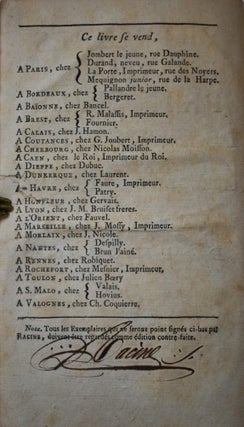 Ce livre se vend,
A PARIS, chez { Jombert le jeune, rue Dauphine.
Durand, neveu, rue Galande.
La Porte, Imprimeur, rue des Noyers.
Mequignon junior, rue de la Harpe.
A BORDEAUX, chez { Pallandre le jeune.
Bergeret.
A BAÏONNE, chez Bancel.
A BREST, chez { R. Malassis, Imprimeur.
Fournier.
A CALAIS, chez J. Hamon.
A COUTANCES, chez G. Joubert, Imprimeur.
A CHERBOURG, chez Nicolas Moisson.
A CAEN, chez le Roi, Imprimeur du Roi.
A DIEPPE, chez Dubuc.
A DUNKERQUE, chez Laurent.
HAVRE, chez { Faure, Imprimeur.
Patry.
A HONFLEUR, chez Gervais.
A LYON, chez J. M. Bruiset freres.
A L'ORIENT, chez Fauvel.
A MARSEILLE, chez J. Mossy, Imprimeur.
A MORLAIX, chez J. Nicole.
A NANTES, chez { Despilly.
Brun l'aîné.
A RENNES, chez Robiquet.
A ROCHEFORT, chez Mesnier, Imprimeur,
A TOULON, chez Julien Barry
A S. MALO, chez { Valais.
Hovius.
A VALOGNES, chez Ch. Coquierre.
Nota. Tous les Exemplaires qui ne seront point signés ci-bas par
RACINE, doivent être regardés comme édition contre-faite.
Racine